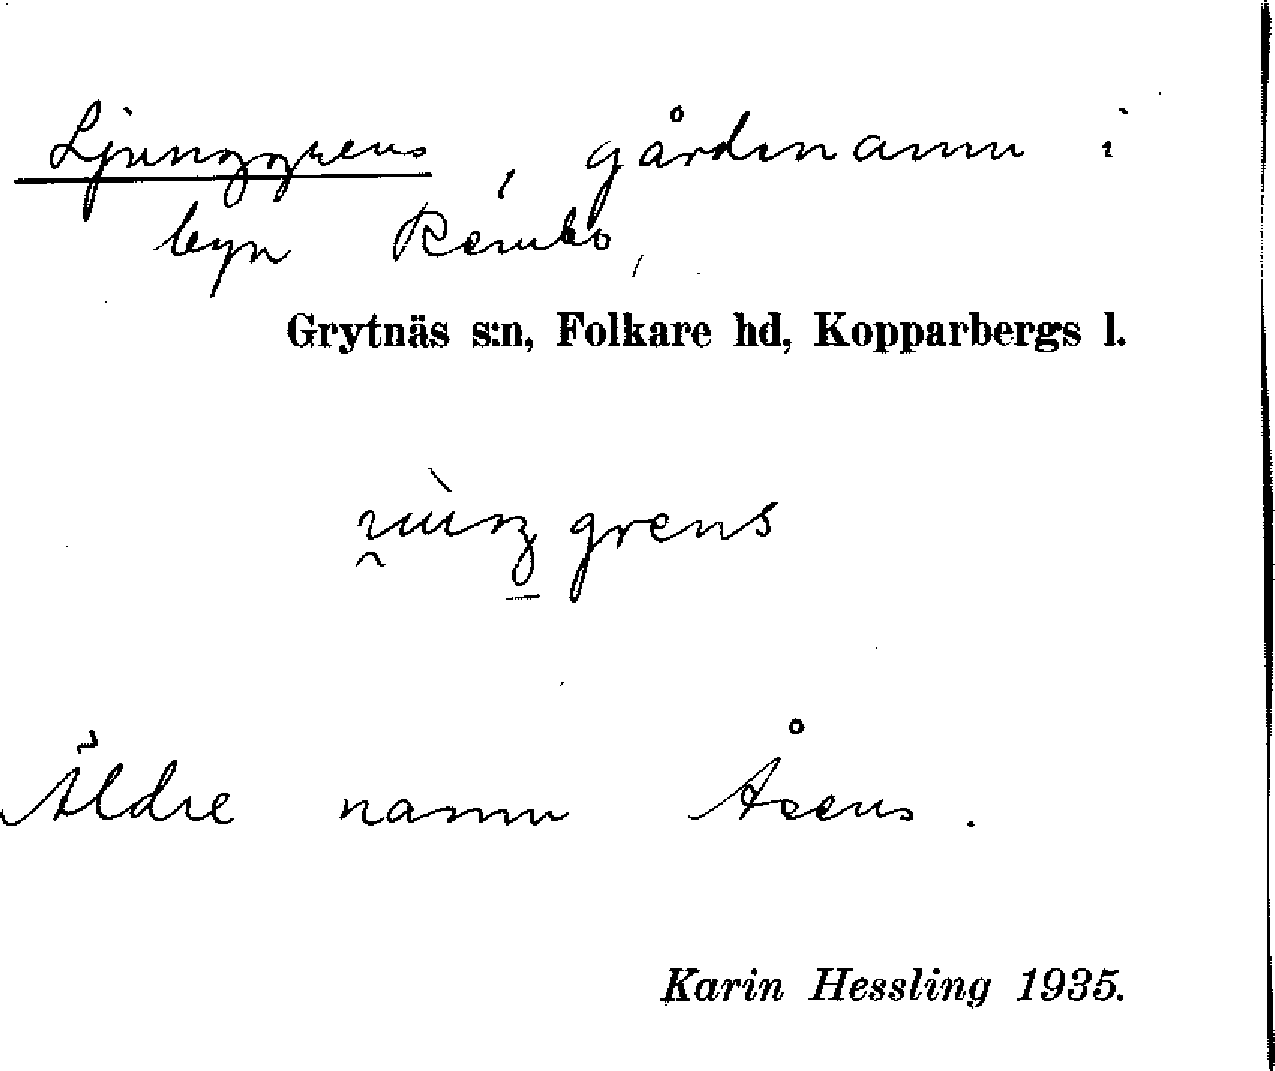 Ljunggrens, gårdsnamn i
byn Rembo,
Grytnäs s:n, Folkare hd, Kopparbergs l.
grens
Äldre namn Åsens.
Karin Hessling 1935.